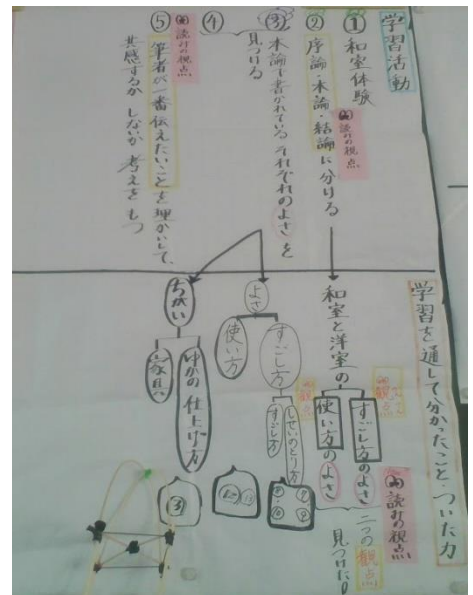 学習活動
① 和室体験
② 序論・本論・結論に分ける
読みの視点
③ 本論で書かれている それぞれのよさを
見つける
④
読みの視点
⑤ 筆者が一番伝えたいことを理かいして、
共感するか しないか 考えを もつ
学習を通して分かったこと・ついた力
読みの視点
和室と洋室の
すごし方のよさ
使い方のよさ
二つの観点
見つけた!
観点
よさ
すごし方
使い方
しせいのとり方
すごし方
ちがい
ゆかの 仕上げ方
家具
③